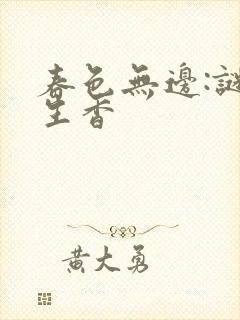 春色無邊:謎
生香
黃大勇